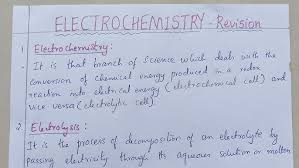 ELECTROCHEMISTRY - Revision
1. Electrochemistry:
- It is that branch of Science which deals with the
conversion of chemical energy produced in a redox
reaction into eletrical energy (electrochemical cell) and
vice versa (electrolytic cell).
2. Eletrolysis:
- It is the process of decomposition of an electrolyte by
passing eletricity through its aqueous solution or molten